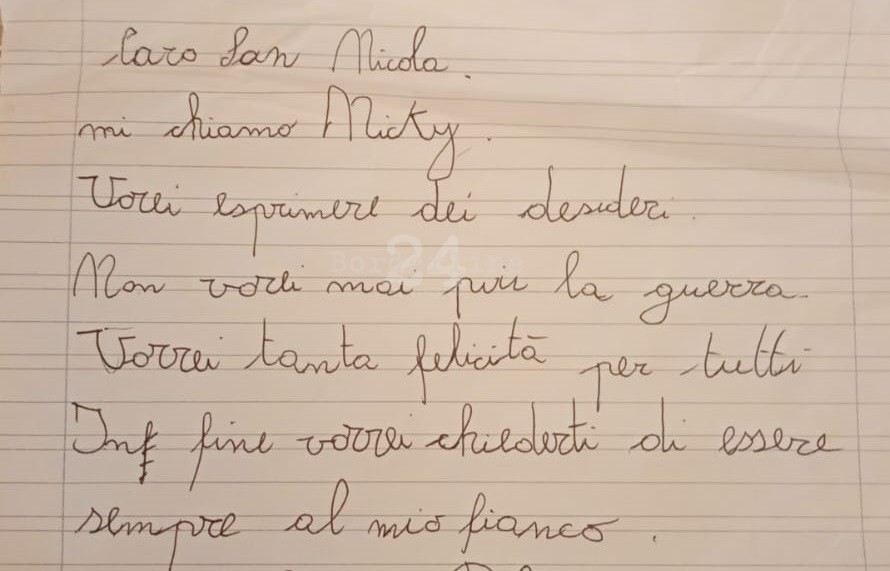 Caro San Nicola.
mi chiamo Micky.
Vorei esprimere dei desideri.
Non vorei mai più la guerra.
Vorrei tanta felicità per tutti
Inf fine vorrei chiederti di essere
sempre al mio fianco.